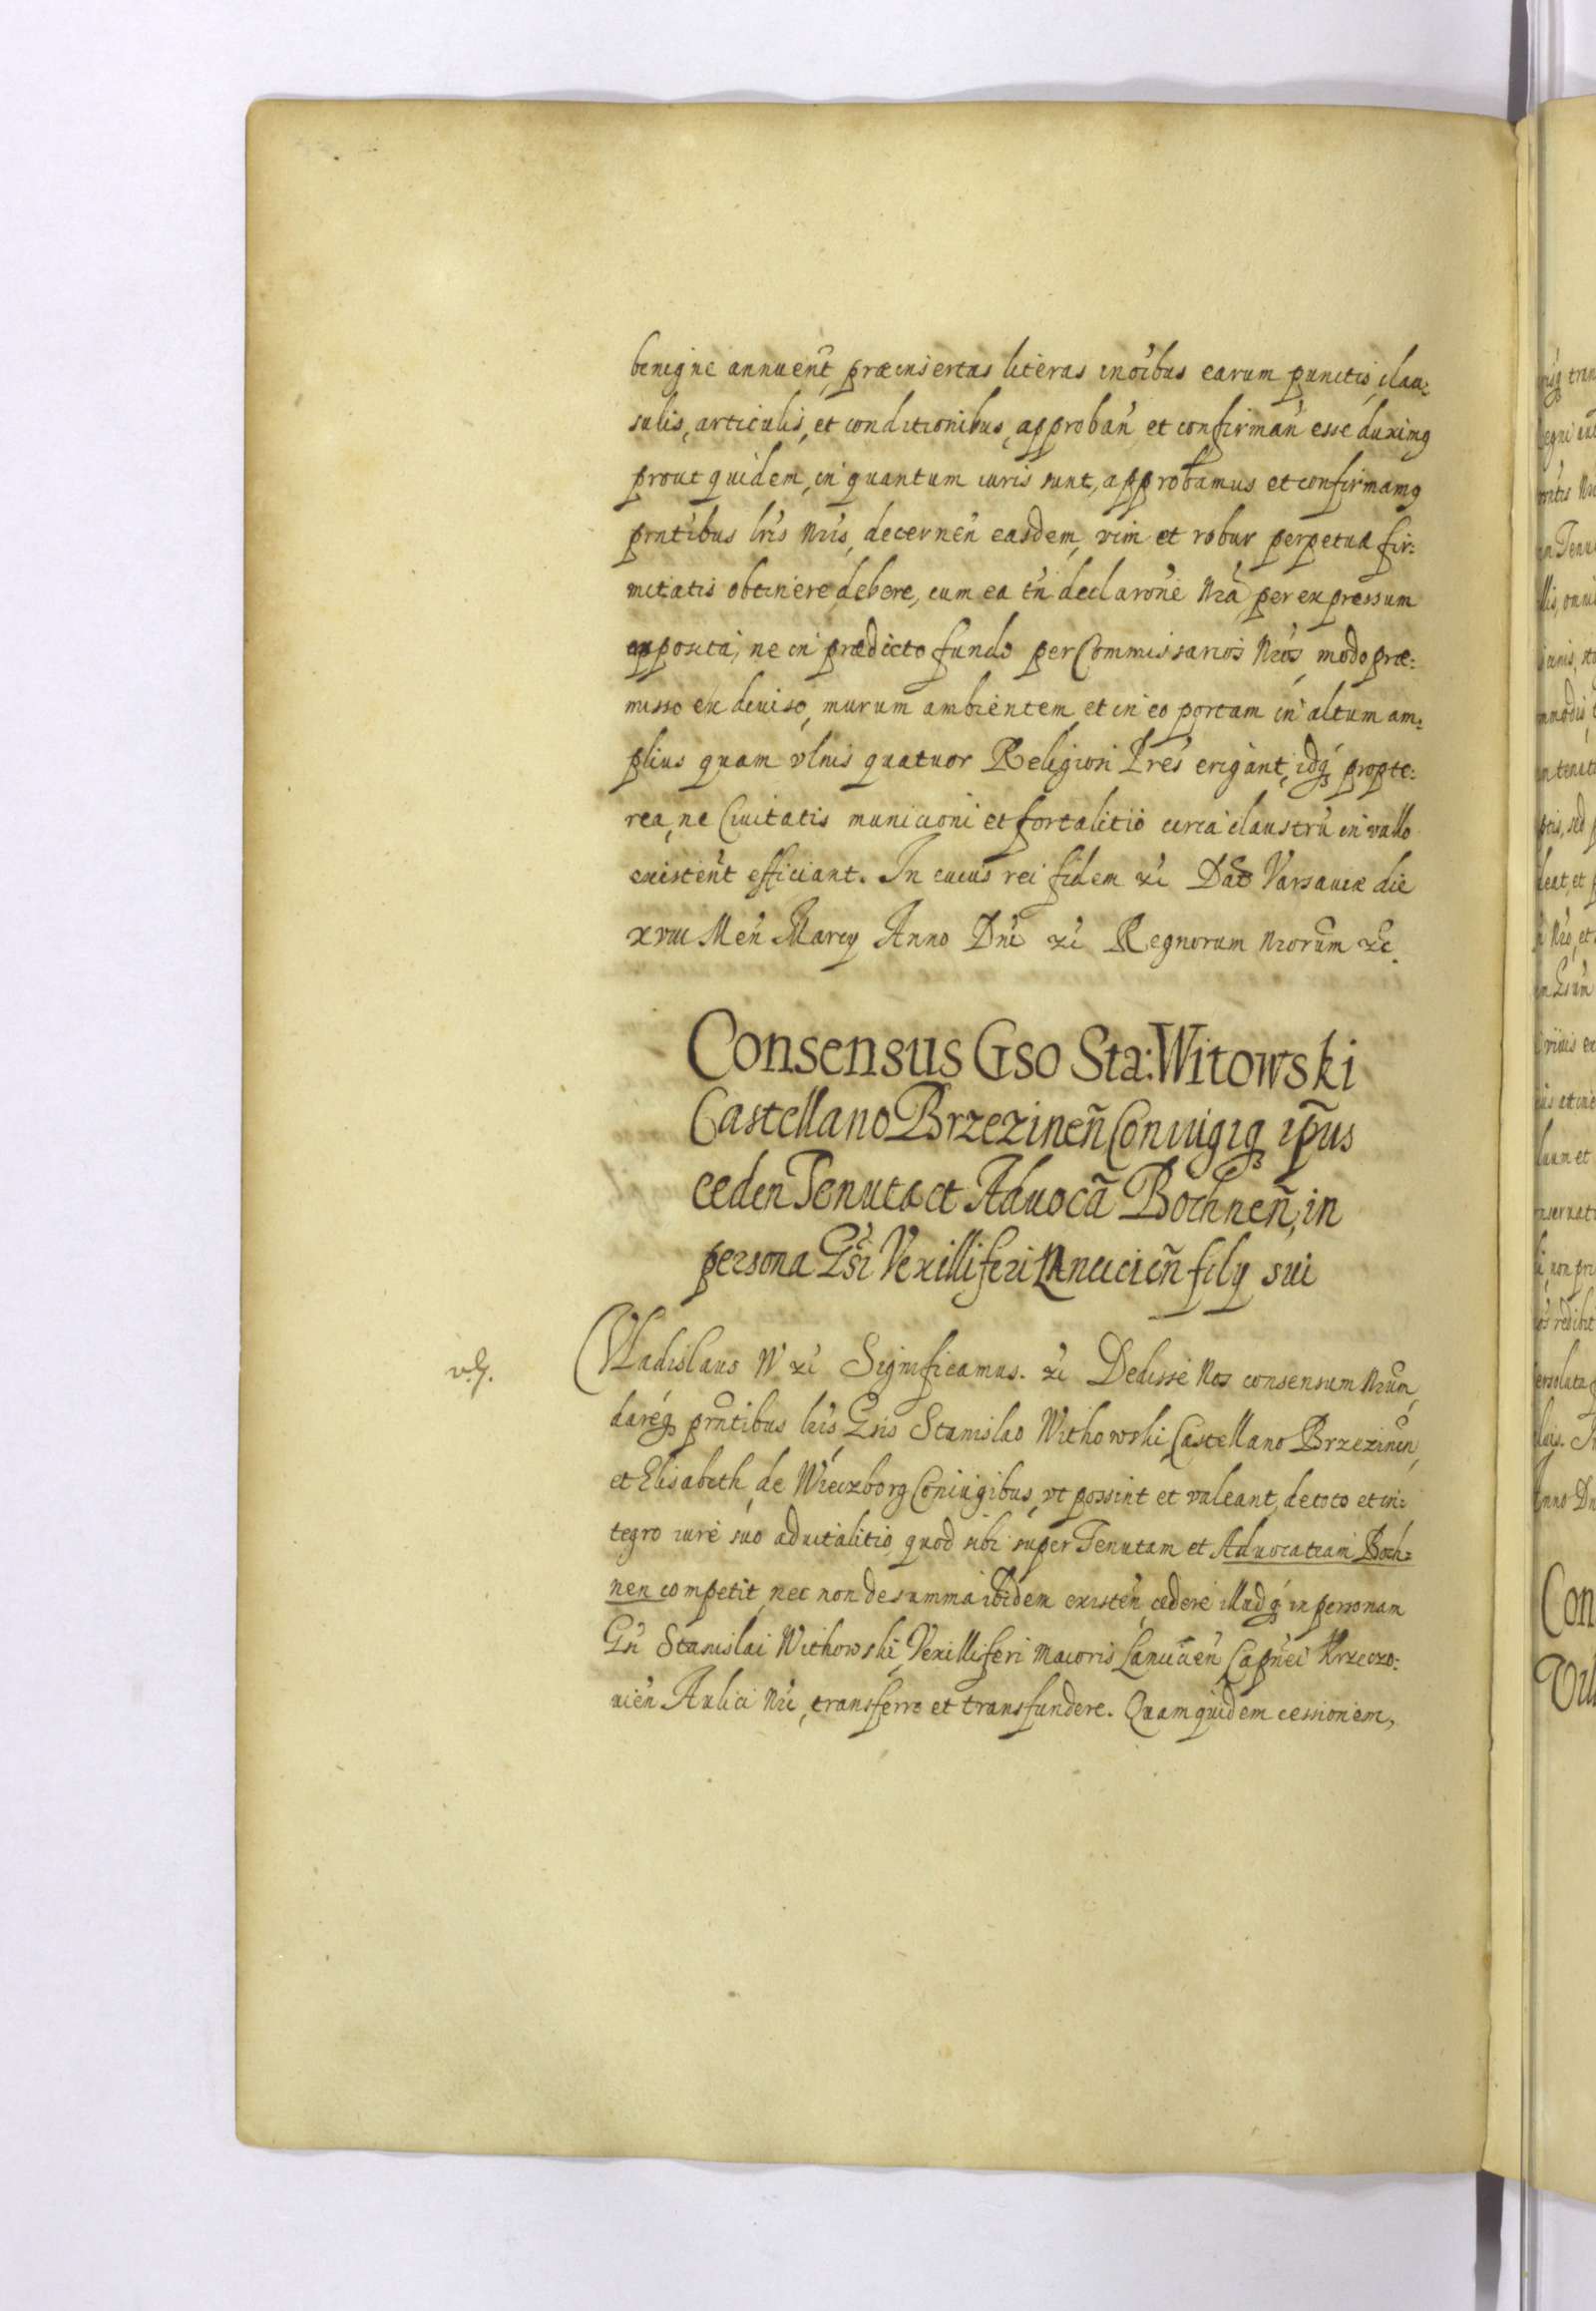 benigne annuent, præinsertas literas in oibus earum punctis, clau:
sulis, articulis, et conditionibus, approban et confirman esse duximg
prout quidem, in quantum iuris sunt, approbamus et confirmamg
prntibus lris nris, decernen easdem, vim et robur perpetuæ fir:
mitatis obtinere debere, cum ea tn declarone nra per expressum
apposita, ne in prædicto fundo per Commissarios nros, modo præ:
misso ex diuiso, murum ambientem et in eo portam in altum am:
plius quam vlnis quatuor Religiosi Fres erigant, idq propte:
rea, ne Ciuitatis municioni et fortalitio circa claustru in vallo
existent efficiant. In cuius rei fidem xc Dat Varsauiæ die
xviii Men Marcy Anno Dni xc Regnorum nrorum xc.
Consensus Gso Sta: Witowski
Castellano Brzezinen Coniugiq ipus
ceden Tenuta et Aduoca Bochnen, in
persona Gsi Vexilliferi Lancicien fily sui
v.s.
Vladislaus IV xc Significamus. xc Dedisse Nos consensum nrum,
dareq prntibus lris Gsis Stanislao Withowski Castellano Brzezinen,
et Elisabeth de Wieczborg Coniugibus, vt possint et valeant, de toto et in:
tegro iure suo aduitalitio, quod sibi super Tenutam et Aduocatiam Boch:
nen competit, nec non de summa ibidem existen, cædere illudq in personam
Gsi Stanislai Withowski, Vexilliferi maioris Lancicien Capnei Krzeczo:
uien Aulici nri, transferre et transfundere. Quam quidem cessionem,